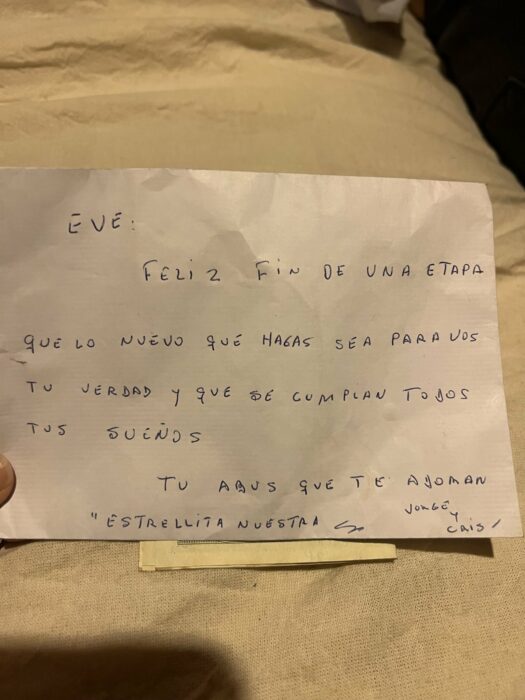 EVE:
FELIZ FIN DE UNA ETAPA
QUE LO NUEVO QUE HAGAS SEA PARA VOS
TU VERDAD Y QUE SE CUMPLAN TODOS
TUS SUEÑOS
TU ABUS QUE TE ADORAN
"ESTRELLITA NUESTRA
JORGE
Y
CRIS